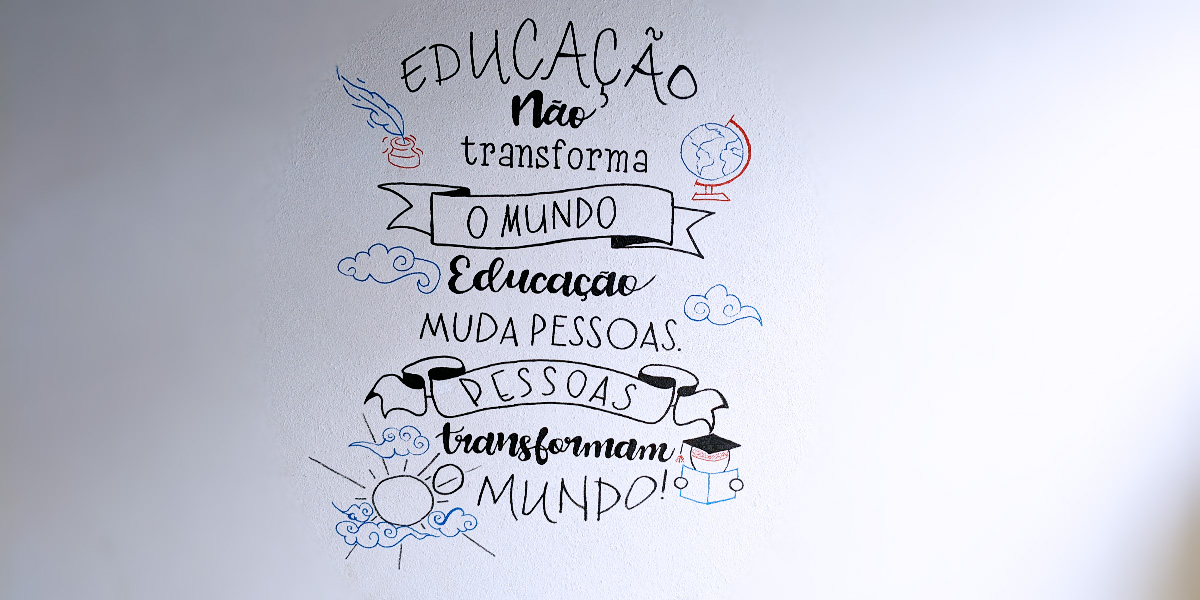 EDUCAÇÃO
Não
transforma
O MUNDO
Educação
MUDA PESSOAS.
PESSOAS
transformam
O MUNDO!